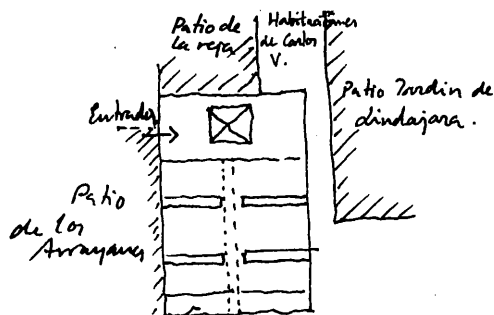 Patio de
la reja
Habitaciones
de Carlos
V.
Patio Jardin de
Lindajara.
Entrada
Patio
de los
Arrayanes